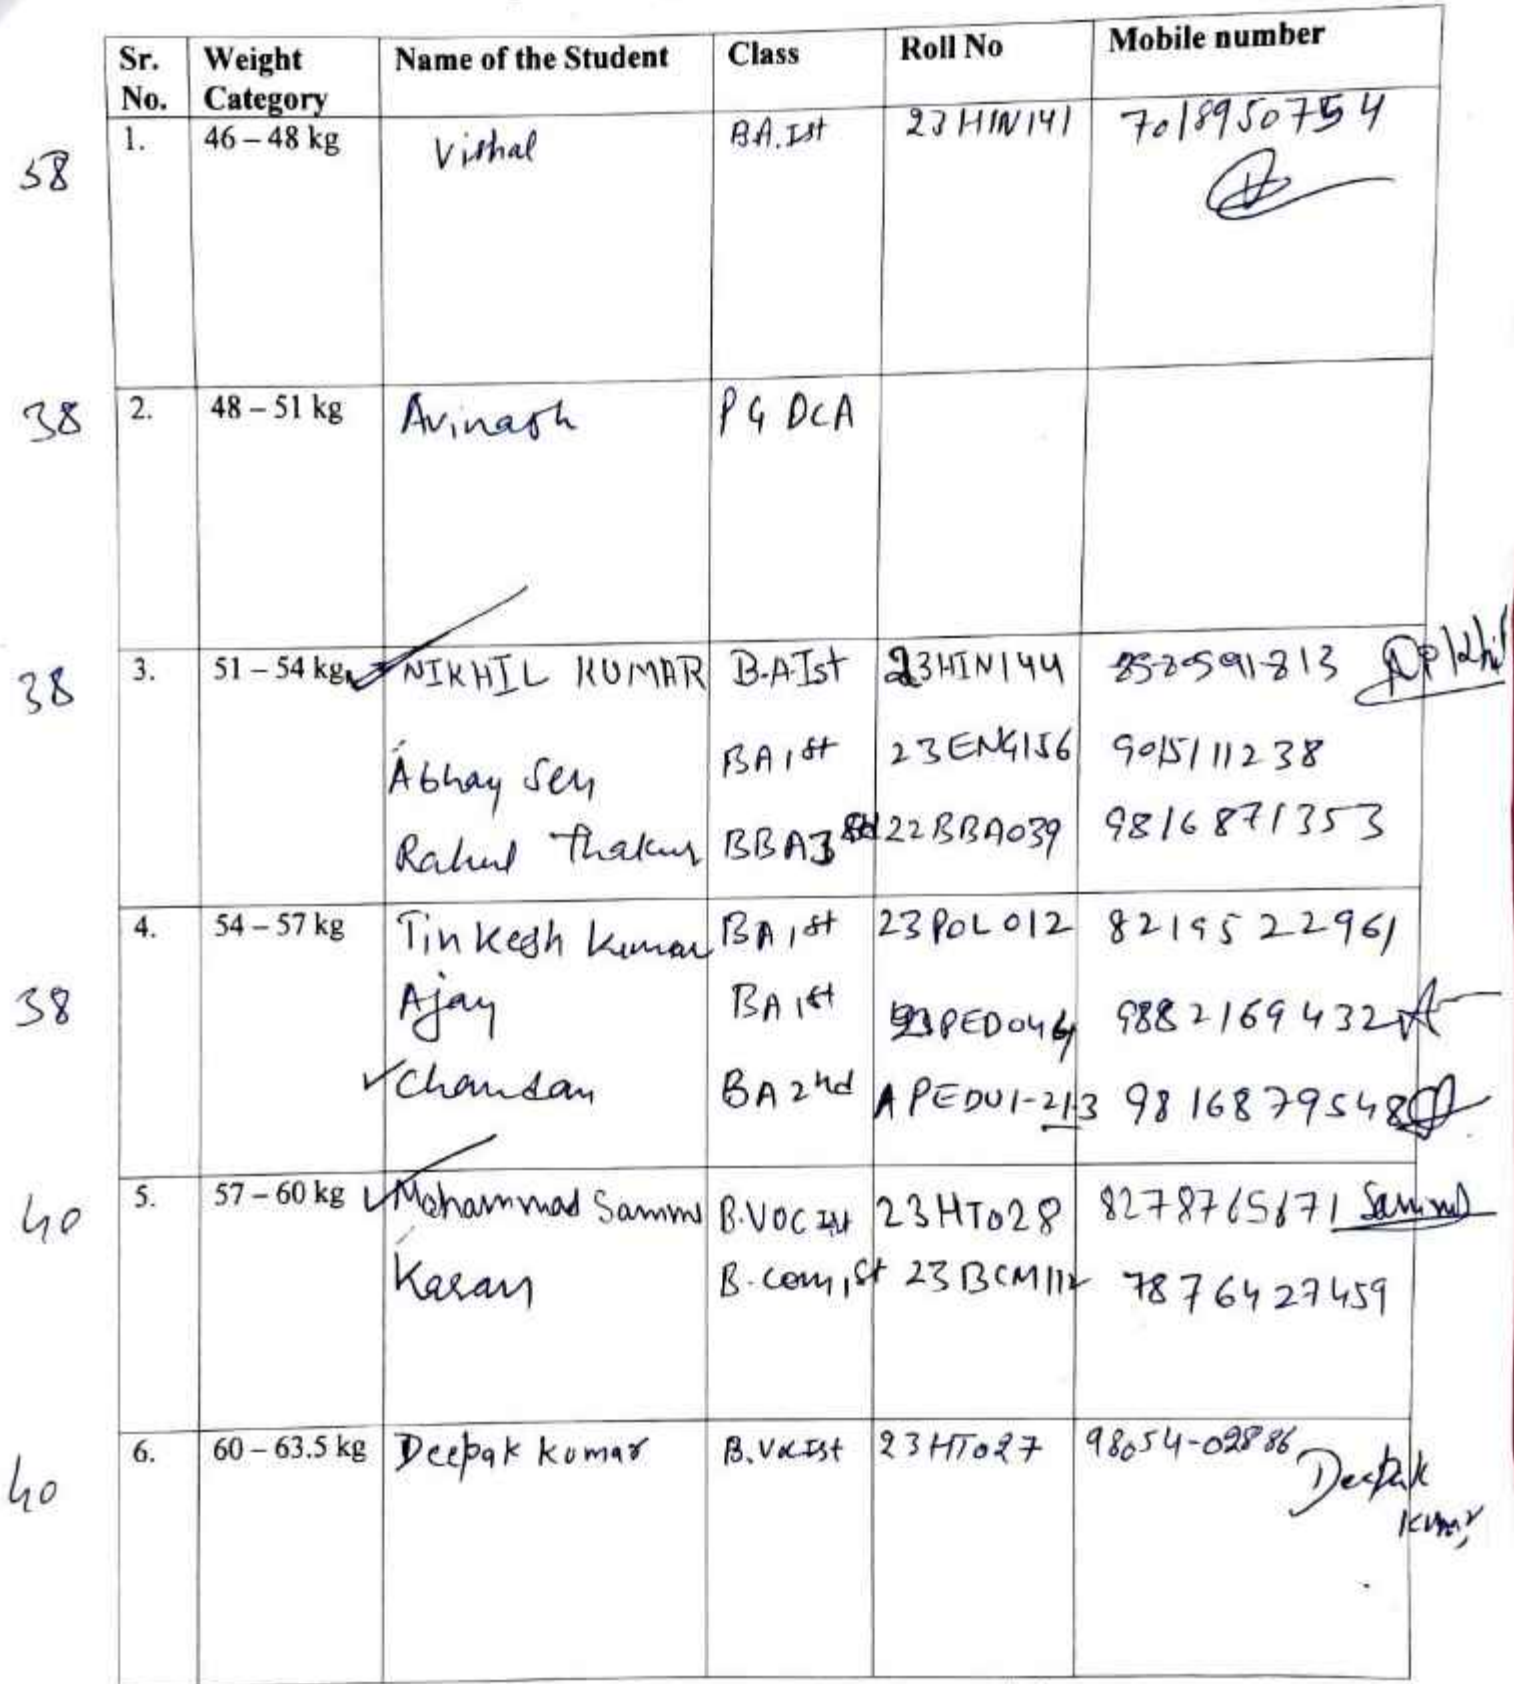 Sr. No. Weight Category Name of the Student Class Roll No Mobile number
38 1. 46 – 48 kg Vishal BA.Ist 23HIN141 7018950754
38 2. 48 – 51 kg Avinash PGDCA
38 3. 51 – 54 kg NIKHIL KUMAR B.A.Ist 23HIN144
Abhay Sen BA 1st 23ENG156 9015111238
Rahul Thakur BBA3 22BBA039 9816871353
38 4. 54 – 57 kg Tinkesh Kumar BA 1st 23POL012 8219522961
Ajay BA 1st 9882169432
Chandan BA 2nd APEDU1-213 9816879548
40 5. 57 – 60 kg Mohammad Sammi B.VOC Ist 23HT028 Sammi
Karan B.com 1st 23BCM112 7876427459
40 6. 60 – 63.5 kg Deepak Kumar B.Voc Ist 23HT027 98054-02886
Deepak
Kumar